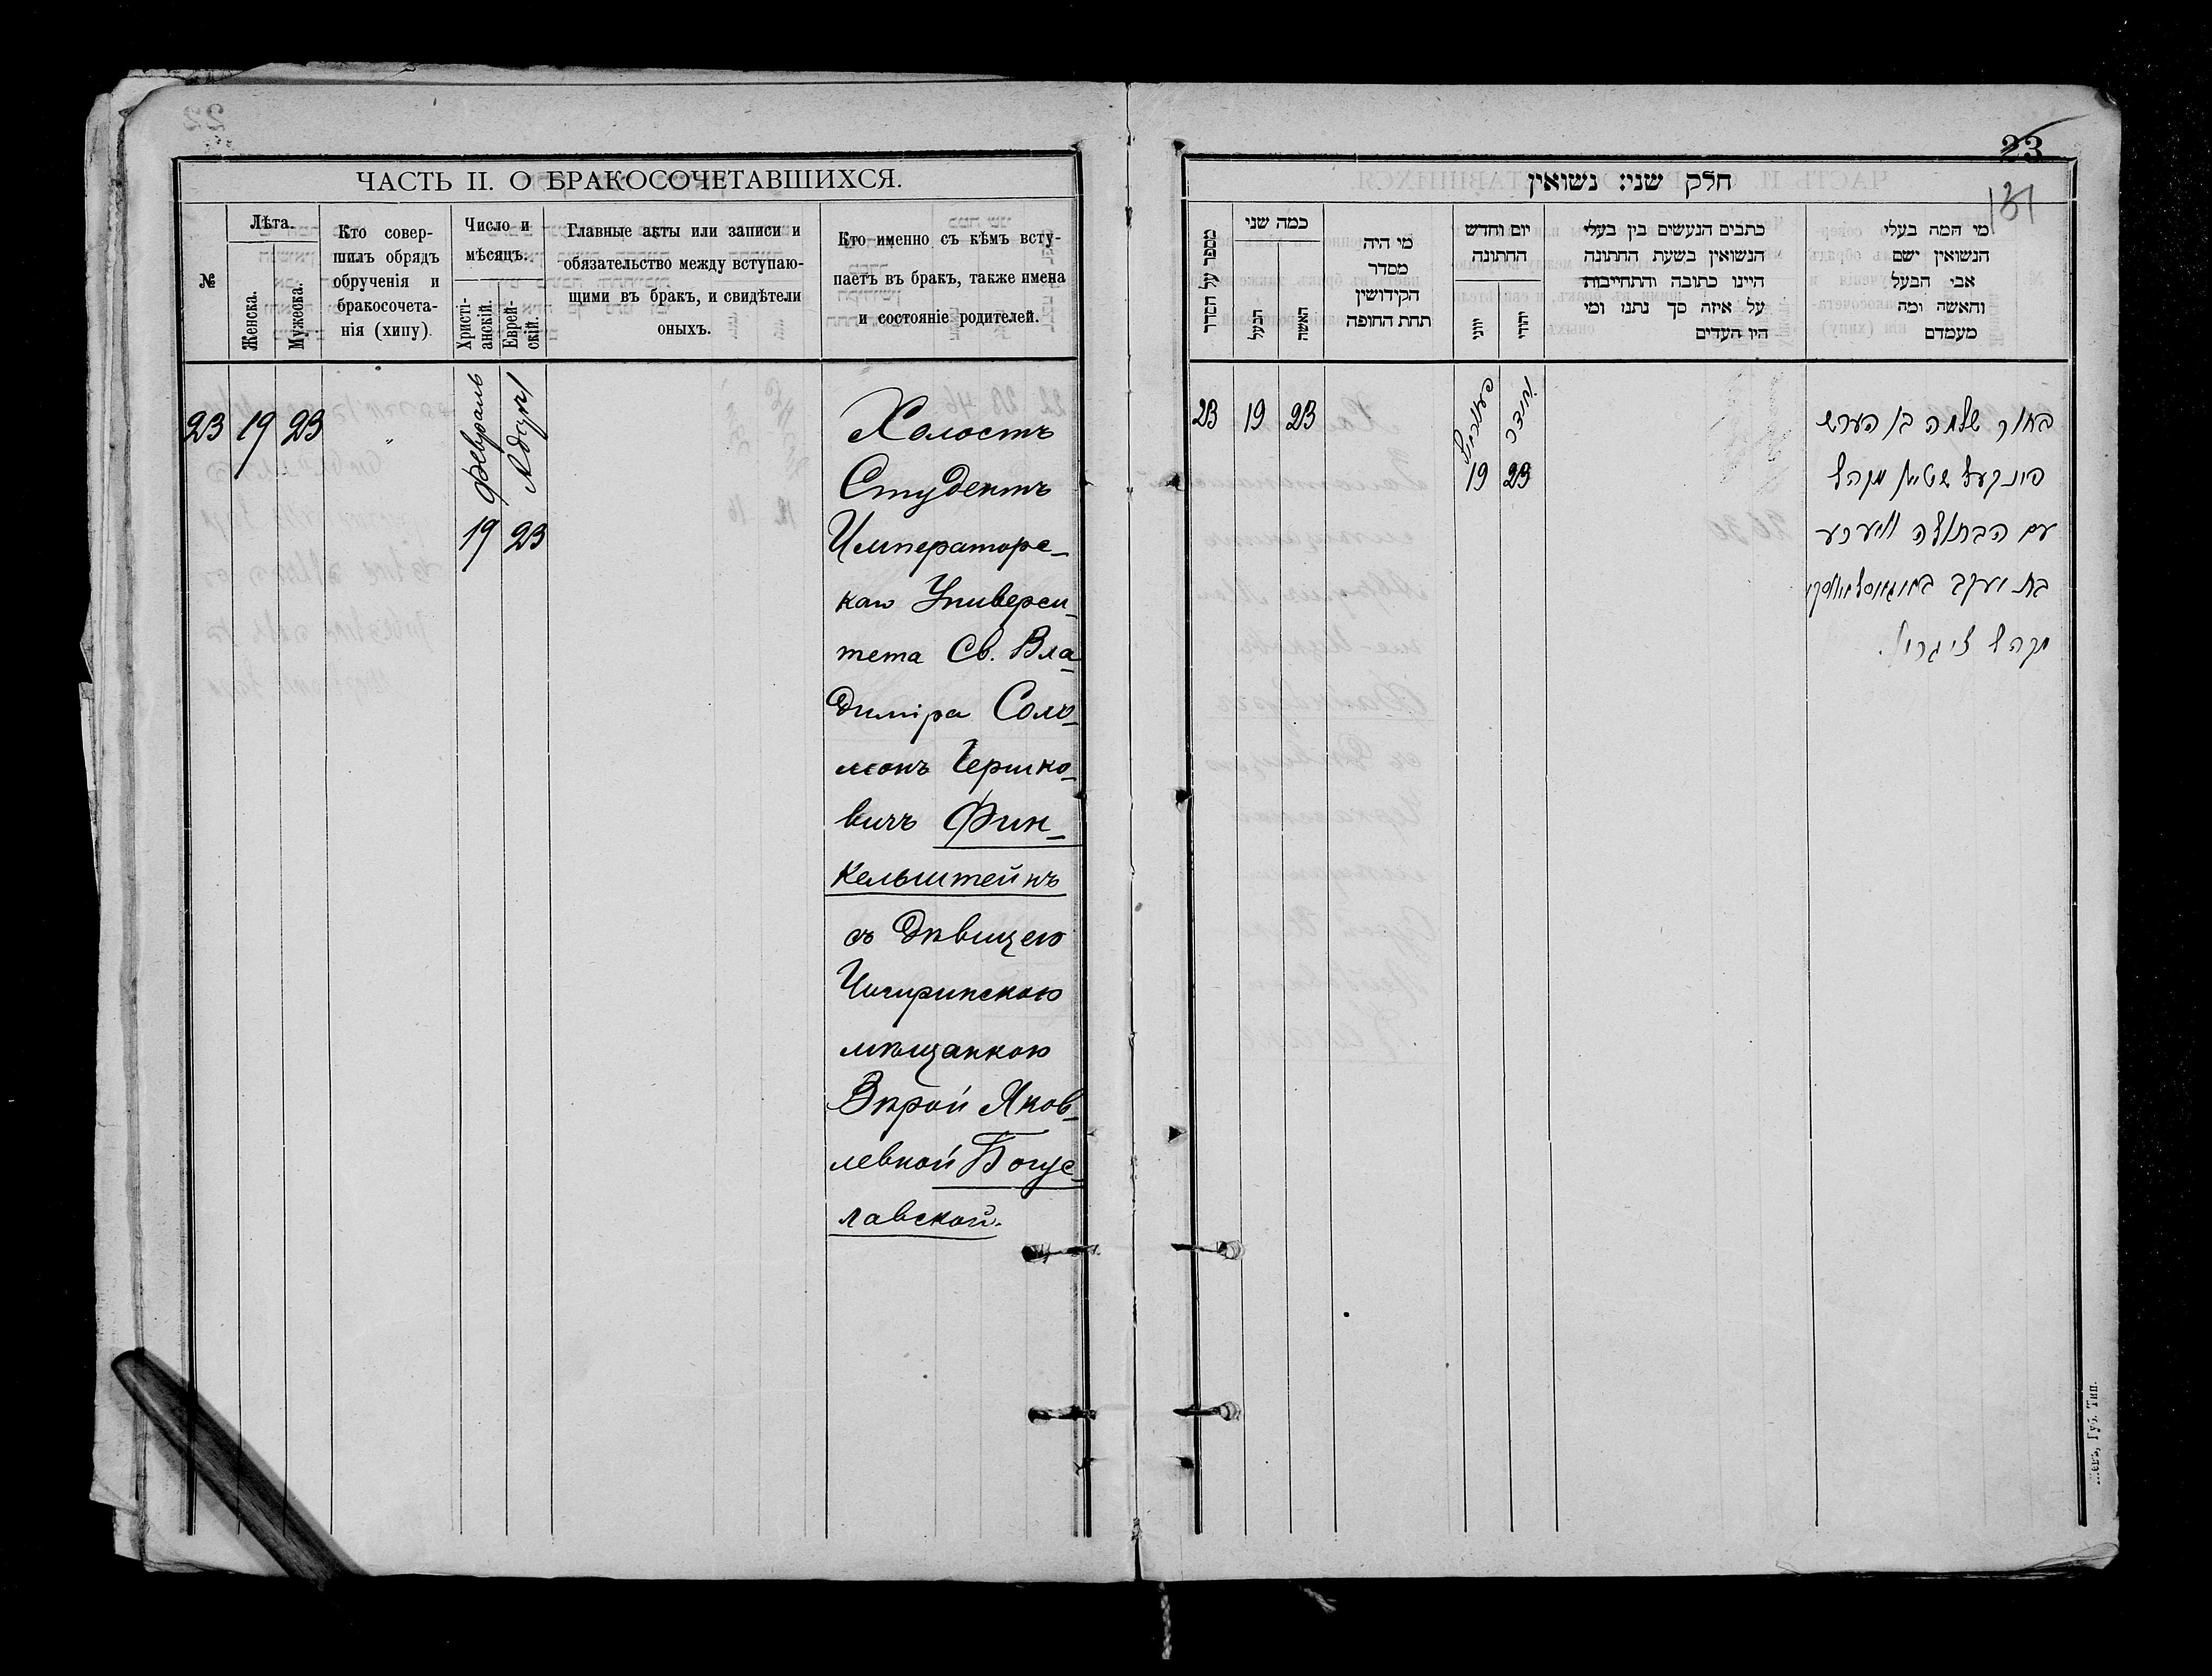 ЧАСТЬ II. О БРАКОСОЧЕТАВШИХСЯ.
№
Лѣта.
Женска.
Мужеска.
Кто совер-
шилъ обрядъ
обрученія и
бракосочета-
нія (хипу).
Число и
мѣсяцъ.
Христі-
анскій.
Еврей-
скій.
Главные акты или записи и
обязательство между вступаю-
щими въ бракъ, и свидѣтели
оныхъ.
Кто именно съ кѣмъ всту-
паетъ въ бракъ, также имена
и состояніе родителей.
23 19 23 „
Февраль
19 23
Холостъ
Студентъ
Императорс-
каго Универси-
тета Св. Вла-
диміра Соло-
монъ Гершко-
вичъ Фин-
кельштейнъ
съ дѣвицею
Чигиринскою
мѣщанкою
Вѣрой Яков-
левной Богус-
лавской.
23
131
חלק שני: נשואין
מספר על הסדר
כמה שני
הבעל
האשה
מי היה
מסדר
הקידושין
תחת החופה
יום וחדש
החתונה
יוני
יהודי
כתבים הנעשים בין בעלי
הנשואין בשעת החתונה
היינו כתובה והתחייבות
על איזה סך נתנו ומי
היו העדים
מי המה בעלי
הנשואין ושם
אבי הבעל
והאשה ומה
מעמדם
23 19 23
19 23
בחור שלמה בן הערש
פינקעלשטיין מקהל
עם הבתולה וויערע
בת יעקב באגוסלאווסקי
מקהל
Губ. Тип.